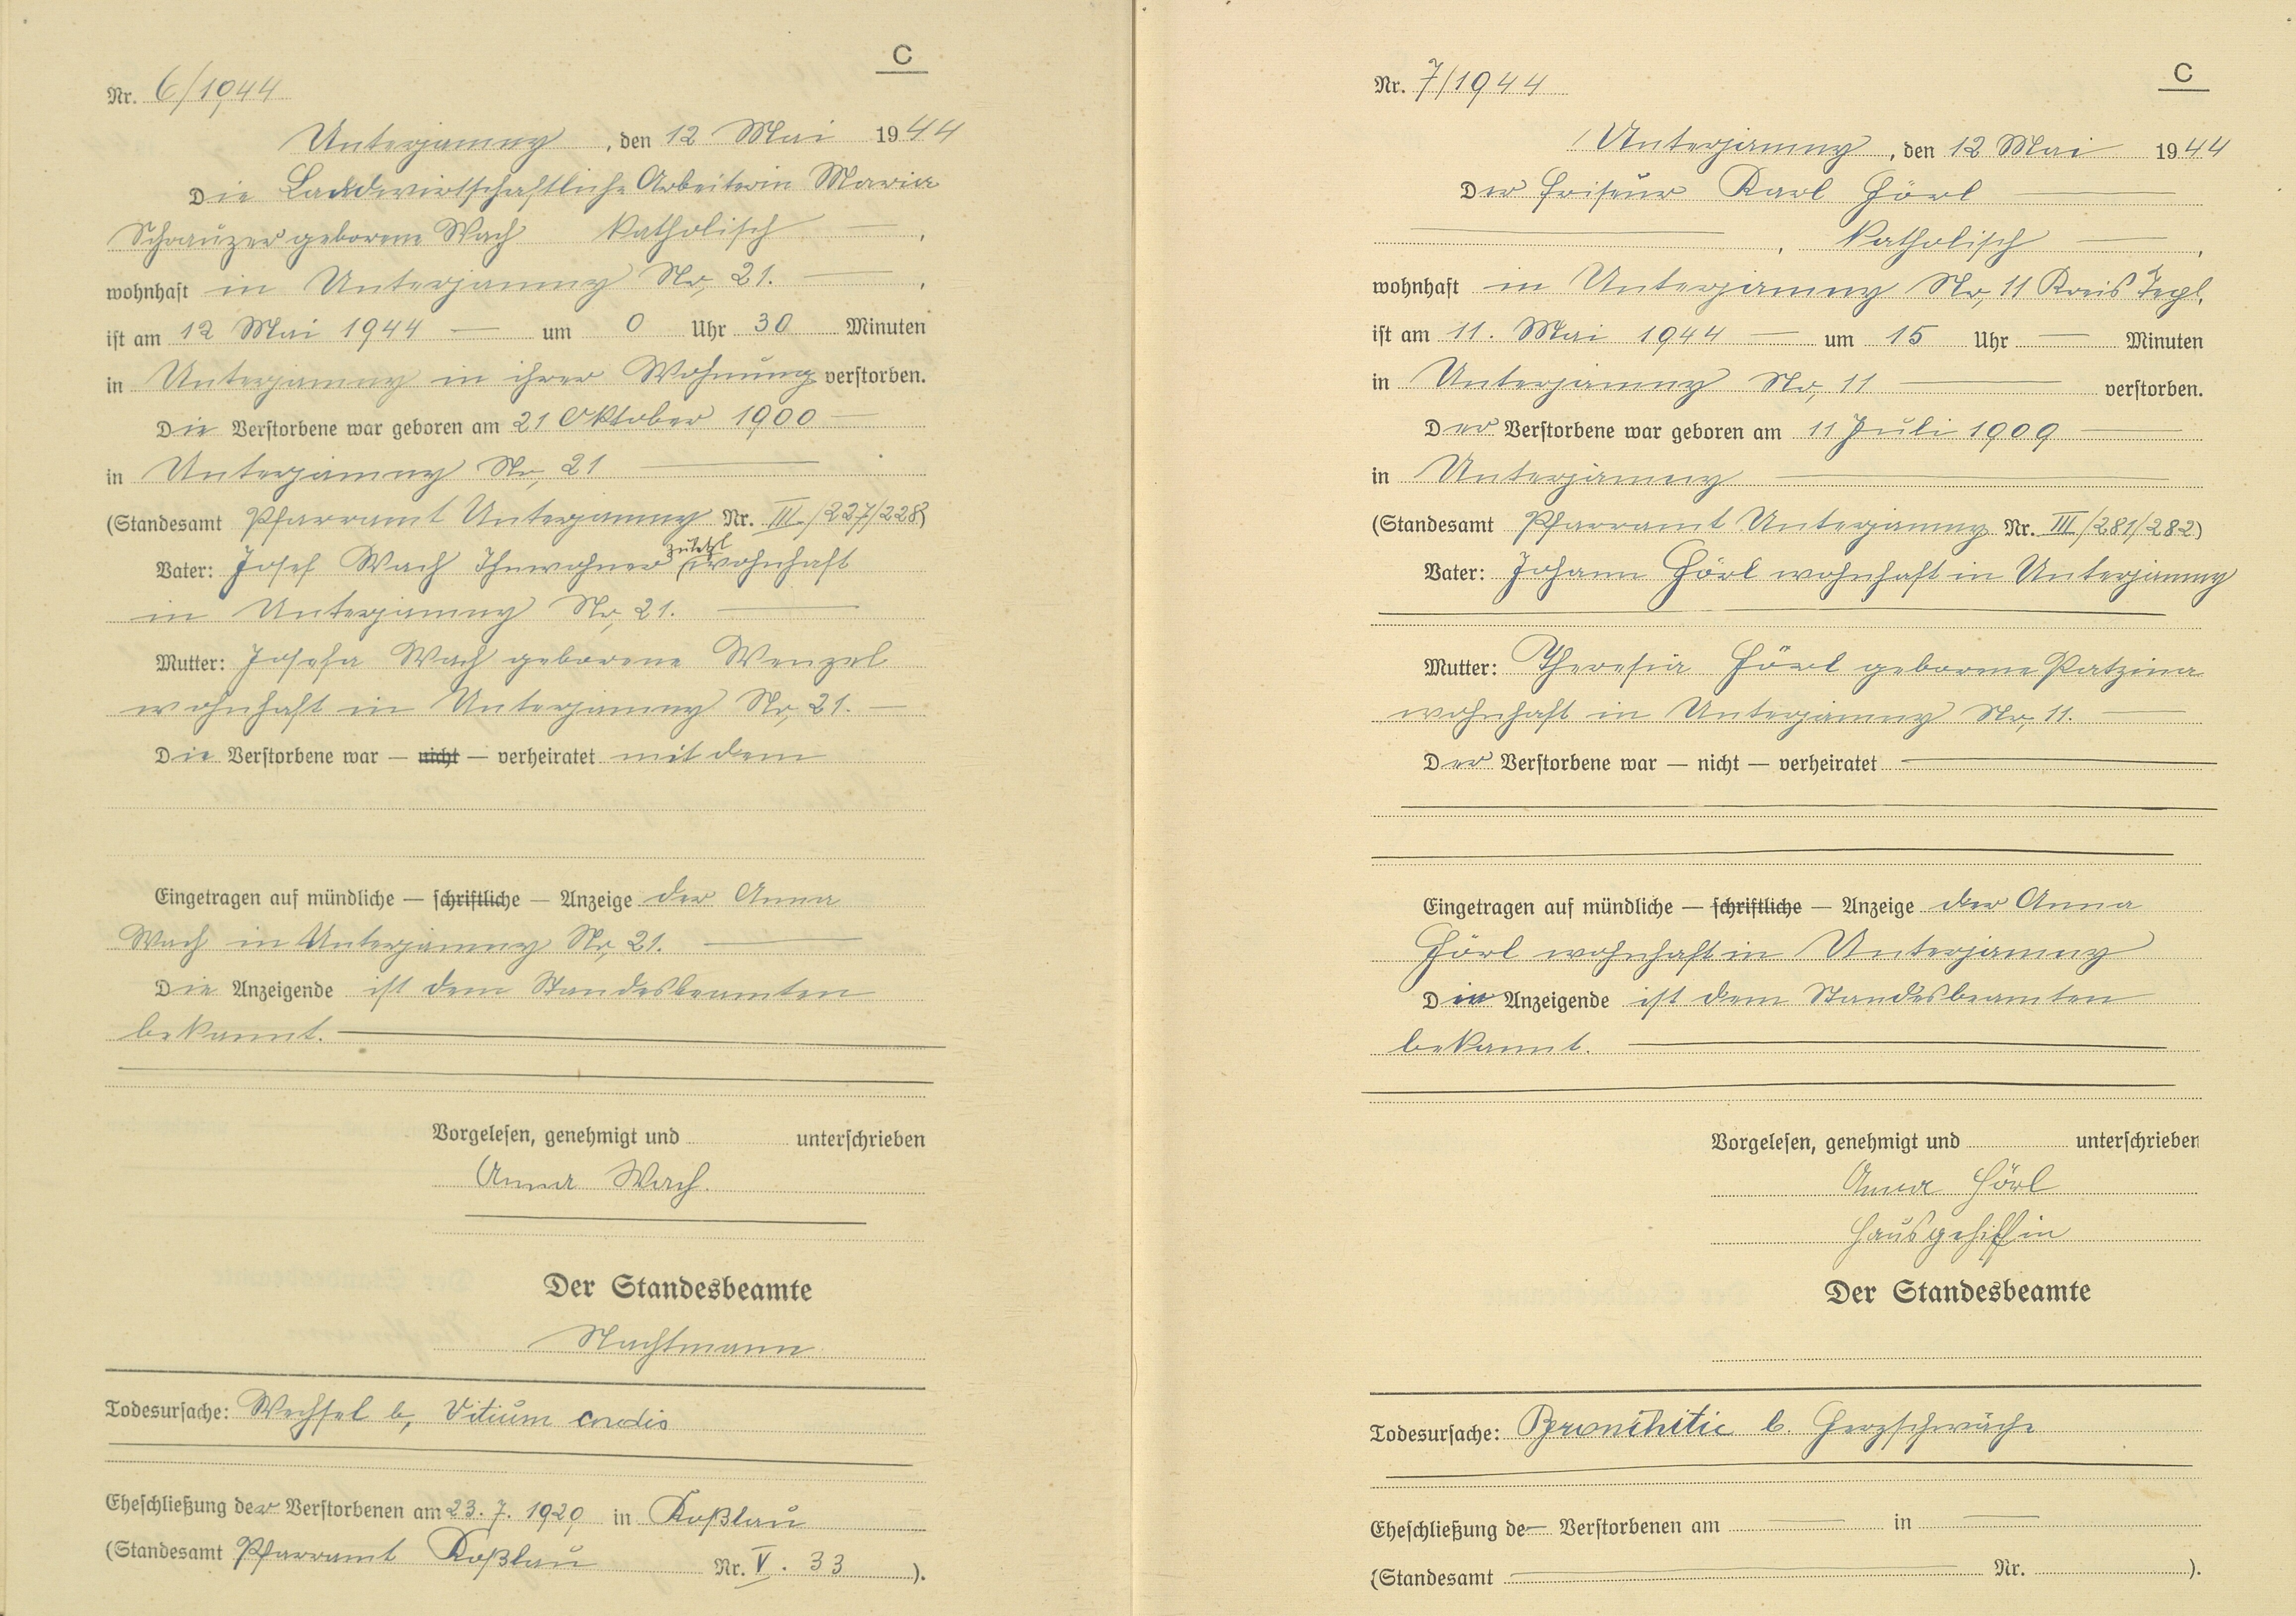 C
Nr. 6/1944
Unterjamny, den 12 Mai 1944
Die Landwirtschaftliche Arbeiterin Maria
Schrauzer geborene Wach Katholisch —,
wohnhaft in Unterjamny Nr, 21. —,
ist am 12 Mai 1944 — um 0 Uhr 30 Minuten
in Unterjamny in ihrer Wohnung verstorben.
Die Verstorbene war geboren am 21 Oktober 1900 —
in Unterjamny Nr, 21 —
(Standesamt Pfarramt Unterjamny Nr. III./227/228)
Vater: Josef Wach Ihnwohner zuletzt wohnhaft
in Unterjamny Nr, 21. —
Mutter: Josefa Wach geborene Wenzel
wohnhaft in Unterjamny Nr, 21. —
Die Verstorbene war — nicht — verheiratet mit dem
Eingetragen auf mündliche — schriftliche — Anzeige der Anna
Wach in Unterjamny Nr, 21. —
Die Anzeigende ist dem Standesbeamten
bekannt. —
Vorgelesen, genehmigt und unterschrieben
Anna Wach.
Der Standesbeamte
Nachtmann
Todesursache: Wechsel b, Vitium cordis
Eheschließung der Verstorbenen am 23. 7. 1929 in Koßlau
(Standesamt Pfarramt Koßlau Nr. V. 33).
C
Nr. 7/1944
Unterjamny, den 12 Mai 1944
Der Friseur Karl Hörl —
—, Katholisch —,
wohnhaft in Unterjamny Nr, 11 Kreis Tepl,
ist am 11. Mai 1944 — um 15 Uhr — Minuten
in Unterjamny Nr, 11 — verstorben.
Der Verstorbene war geboren am 11 Juli 1909 —
in Unterjamny —
(Standesamt Pfarramt Unterjamny Nr. III/281/282)
Vater: Johann Hörl wohnhaft in Unterjamny
Mutter: Theresia Hörl geborene Patzina
wohnhaft in Unterjamny Nr, 11. —
Der Verstorbene war — nicht — verheiratet —
Eingetragen auf mündliche — schriftliche — Anzeige der Anna
Hörl wohnhaft in Unterjamny
Die Anzeigende ist dem Standesbeamten
bekannt. —
Vorgelesen, genehmigt und unterschrieben
Anna Hörl
Hausgehilfin
Der Standesbeamte
Todesursache: Bronchitic b. Herzschwäche
Eheschließung de— Verstorbenen am — in —
(Standesamt — Nr. ).